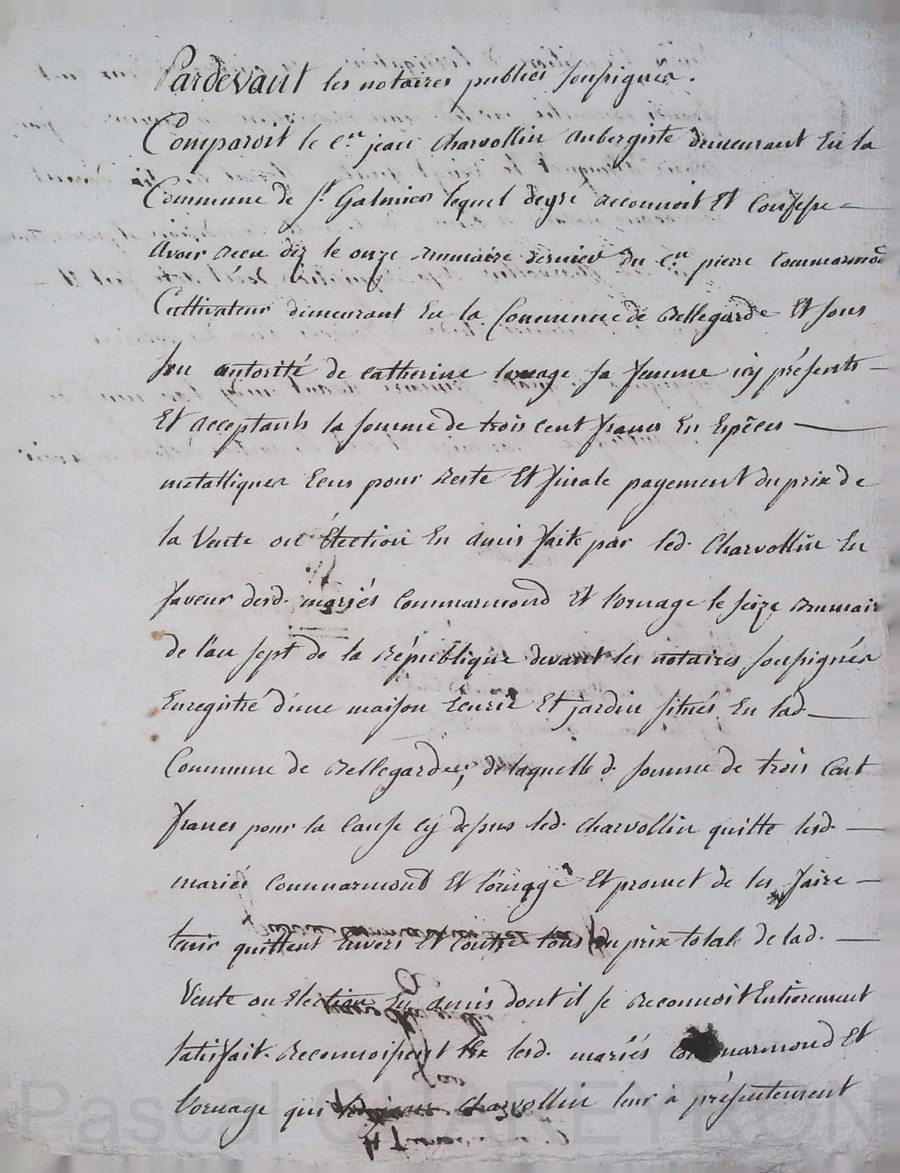 Pardevant les notaires publics soussignés.
Comparoit le c.en jean Charvollin aubergiste demeurant En la
Commune de St. Galmier lequel degré reconnoit Et Confesse
avoir Receu dez le onze Brumaire dernier du c.en pierre Commarmod
Cultivateur demeurant En la Commune de Bellegarde Et sous
son autorité de catherine lornage sa femme icy présents
Et acceptants la somme de trois cent francs En Espèces
metalliques Eeus pour Reste Et finale payement du prix de
la Vente ou Election En amis faite par led. Charvollin En
faveur desd. mariés Commarmond Et lornage le seize Brumair
de l'an sept de la République devant les notaires soussignés
Enregistré d'une maison Ecurie Et jardin situés En lad.
Commune de Bellegarde, de laquelle d. somme de trois Cent
francs pour la Cause cy dessus led. Charvollin quitte lesd.
mariés Commarmond Et lornage Et promet de les faire
tenir quittent Envers Et Contre tous du prix total de lad.
Vente ou Election En amis dont il se Reconnoit Entièrement
satisfait. Reconnoissent lesd. mariés Commarmond Et
lornage que Charvollin leur à présentement
Pascal CHAPEYRON